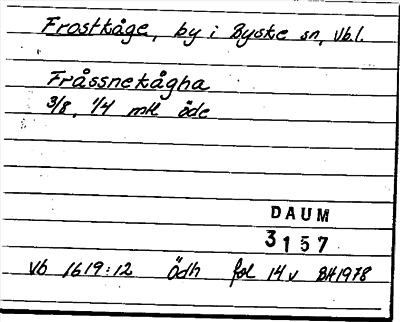 Frostkåge, by i Byske sn, Vb.l.
Fråssnekågha
3/8, 1/4 mtl öde
DAUM
3157
Vb 1619:12 Ödh fol 14v BH1978